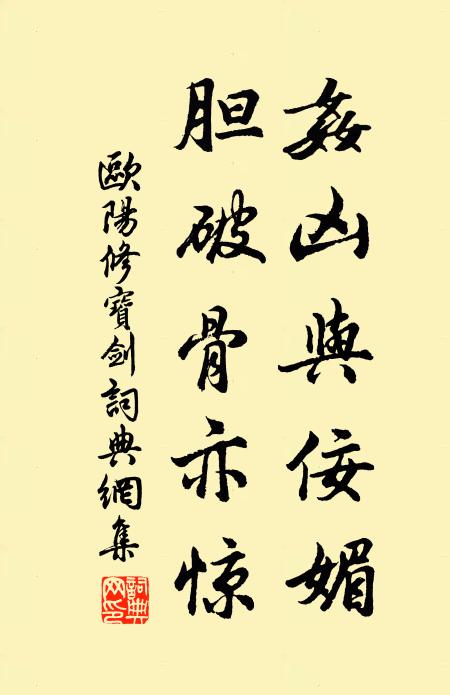 姦凶與佞媚
胆破骨亦惊
歐陽修寶劍詞典網集
詞典網印